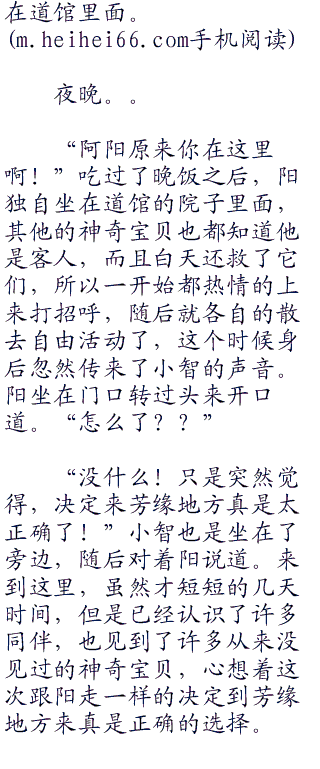 在道馆里面。
(m.heihei66.com手机阅读)
夜晚。。
“阿阳原来你在这里
啊！”吃过了晚饭之后，阳
独自坐在道馆的院子里面，
其他的神奇宝贝也都知道他
是客人，而且白天还救了它
们，所以一开始都热情的上
来打招呼，随后就各自的散
去自由活动了，这个时候身
后忽然传来了小智的声音。
阳坐在门口转过头来开口
道。“怎么了？？”
“没什么！只是突然觉
得，决定来芳缘地方真是太
正确了！”小智也是坐在了
旁边，随后对着阳说道。来
到这里，虽然才短短的几天
时间，但是已经认识了许多
同伴，也见到了许多从来没
见过的神奇宝贝，心想着这
次跟阳走一样的决定到芳缘
地方来真是正确的选择。